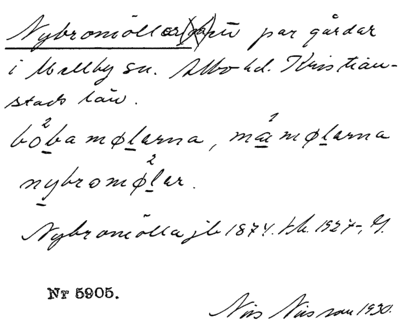 Nybromöllor, ett par gårdar
i Mellby sn. Albo hd. Kristian-
stads län.
bo²ba mølarna, ma¹mølarna
nybromø²lar.
Nybromölla jb 1874. tk. 1927-, G.
Nr 5905.
Nils Nilsson 1930.